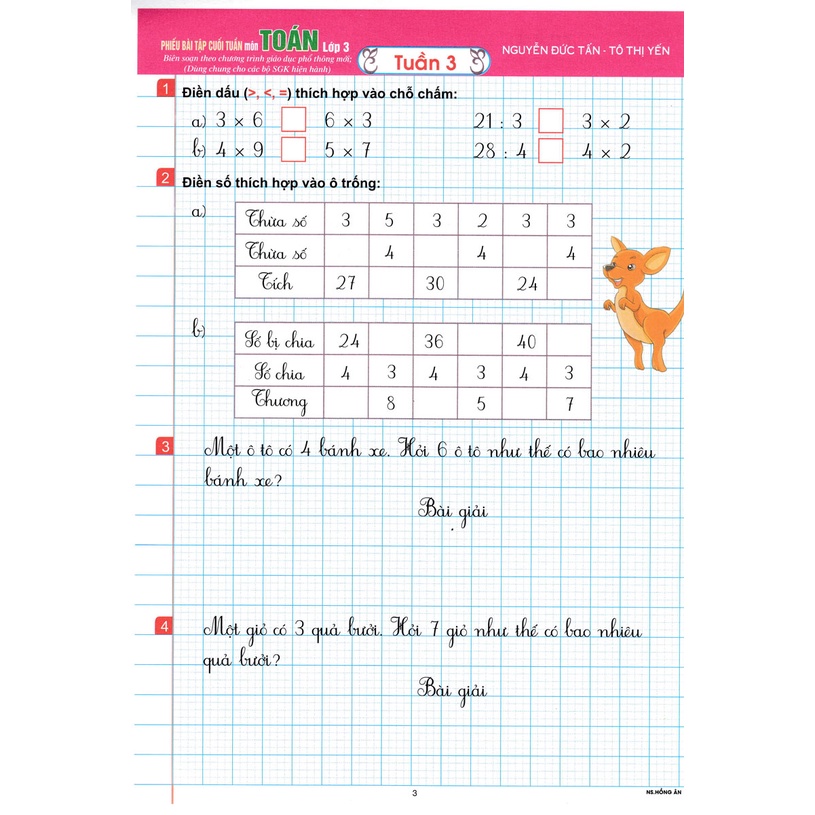 PHIẾU BÀI TẬP CUỐI TUẦN môn TOÁN Lớp 3
Biên soạn theo chương trình giáo dục phổ thông mới;
(Dùng chung cho các bộ SGK hiện hành)
Tuần 3
NGUYỄN ĐỨC TẤN - TÔ THỊ YẾN
1 Điền dấu (>, <, =) thích hợp vào chỗ chấm:
a) 3 × 6 6 × 3 21 : 3 3 × 2
b) 4 × 9 5 × 7 28 : 4 4 × 2
2 Điền số thích hợp vào ô trống:
a)
Thừa số 3 5 3 2 3 3
Thừa số 4 4 4
Tích 27 30 24
b)
Số bị chia 24 36 40
Số chia 4 3 4 3 4 3
Thương 8 5 7
3 Một ô tô có 4 bánh xe. Hỏi 6 ô tô như thế có bao nhiêu
bánh xe?
Bài giải
4 Một giỏ có 3 quả bưởi. Hỏi 7 giỏ như thế có bao nhiêu
quả bưởi?
Bài giải
3
NS.HỒNG ÂN